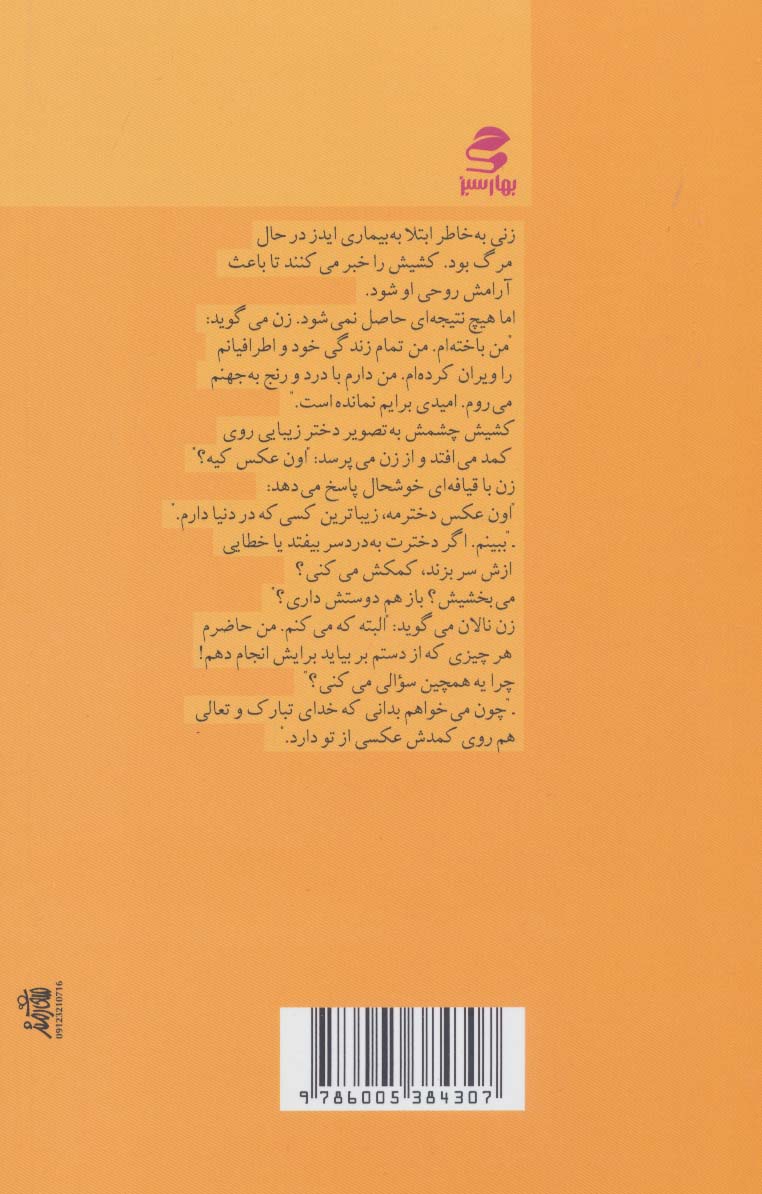 بهار سبز
زنی به‌خاطر ابتلا به‌بیماری ایدز در حال
مرگ بود. کشیش را خبر می‌کنند تا باعث
آرامش روحی او شود.
اما هیچ نتیجه‌ای حاصل نمی‌شود. زن می‌گوید:
"من باخته‌ام. من تمام زندگی خود و اطرافیانم
را ویران کرده‌ام. من دارم با درد و رنج به‌جهنم
می‌روم. امیدی برایم نمانده است."
کشیش چشمش به‌تصویر دختر زیبایی روی
کمد می‌افتد و از زن می‌پرسد: "اون عکس کیه؟"
زن با قیافه‌ای خوشحال پاسخ می‌دهد:
"اون عکس دخترمه، زیباترین کسی که در دنیا دارم."
ـ "ببینم. اگر دخترت به‌دردسر بیفتد یا خطایی
ازش سر بزند، کمکش می‌کنی؟
می‌بخشیش؟ باز هم دوستش داری؟"
زن نالان می‌گوید: "البته که می‌کنم. من حاضرم
هر چیزی که از دستم بر بیاید برایش انجام دهم!
چرا یه همچین سؤالی می‌کنی؟"
ـ "چون می‌خواهم بدانی که خدای تبارک و تعالی
هم روی کمدش عکسی از تو دارد."
09123210716
9 786005 384307